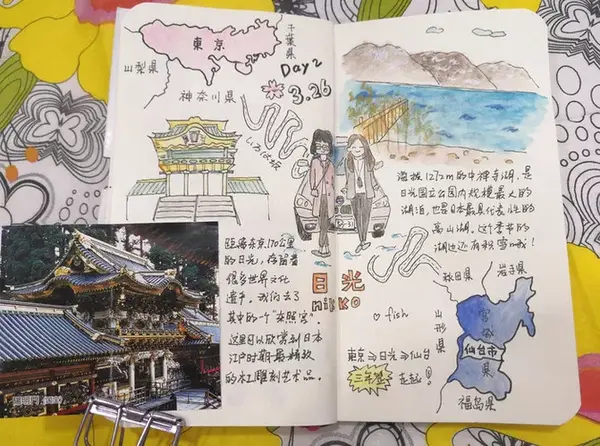 東京
千葉県
山梨県
神奈川県
Day 2
3.26
いろは坂
距离东京170公里
的日光，保留着
很多世界文化
遗产，我们去了
其中的一个"东照宫"，
这里可以欣赏到日本
江户时期最精致
的木工雕刻艺术品。
日光
nikko
海拔1272m的中禅寺湖，是
日光国立公园内规模最大的
湖泊，也是日本最具代表性的
高山湖。这个季节的
湖边还有积雪呢！
♡ fish
東京⇒日光⇒仙台
走起！
秋田県
岩手県
山形県
宮城県
仙台市
福島県
陽明門